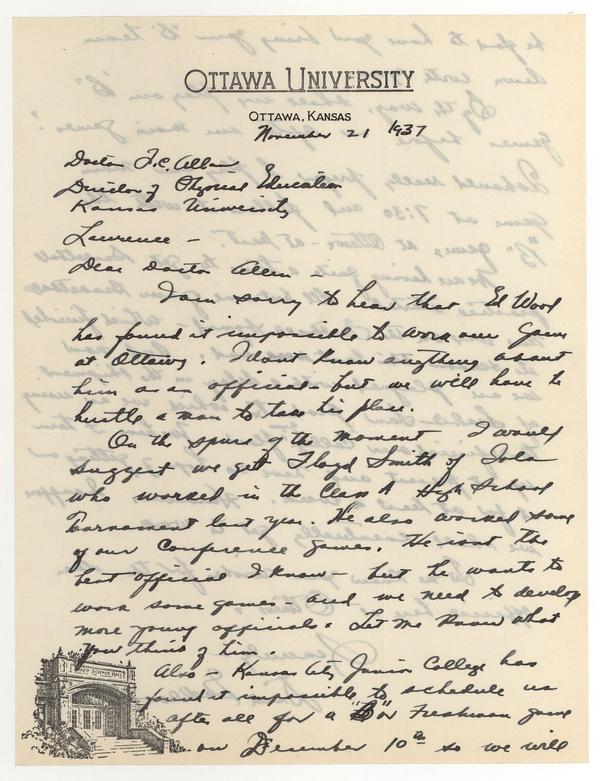 OTTAWA UNIVERSITY
OTTAWA, KANSAS
November 21 1937
Doctor F.C. Allen
Director of Physical Education
Kansas University
Lawrence -
Dear Doctor Allen -
I am sorry to hear that Ed Wood
has found it impossible to work our game
at Ottawa. I dont know anything about
him as an official - but we will have to
hustle a man to take his place.
On the spurr of the moment I would
suggest we get Floyd Smith of Iola
who worked in the Class A High School
Tournament last year. He also worked some
of our Conference games. He isnt the
best official I know - but he wants to
work some games - and we need to develop
more young officials. Let me know what
you think of him.
Also - Kansas City Junior College has
found it impossible to schedule us
after all for a "B" or Freshman game
on December 10th so we will